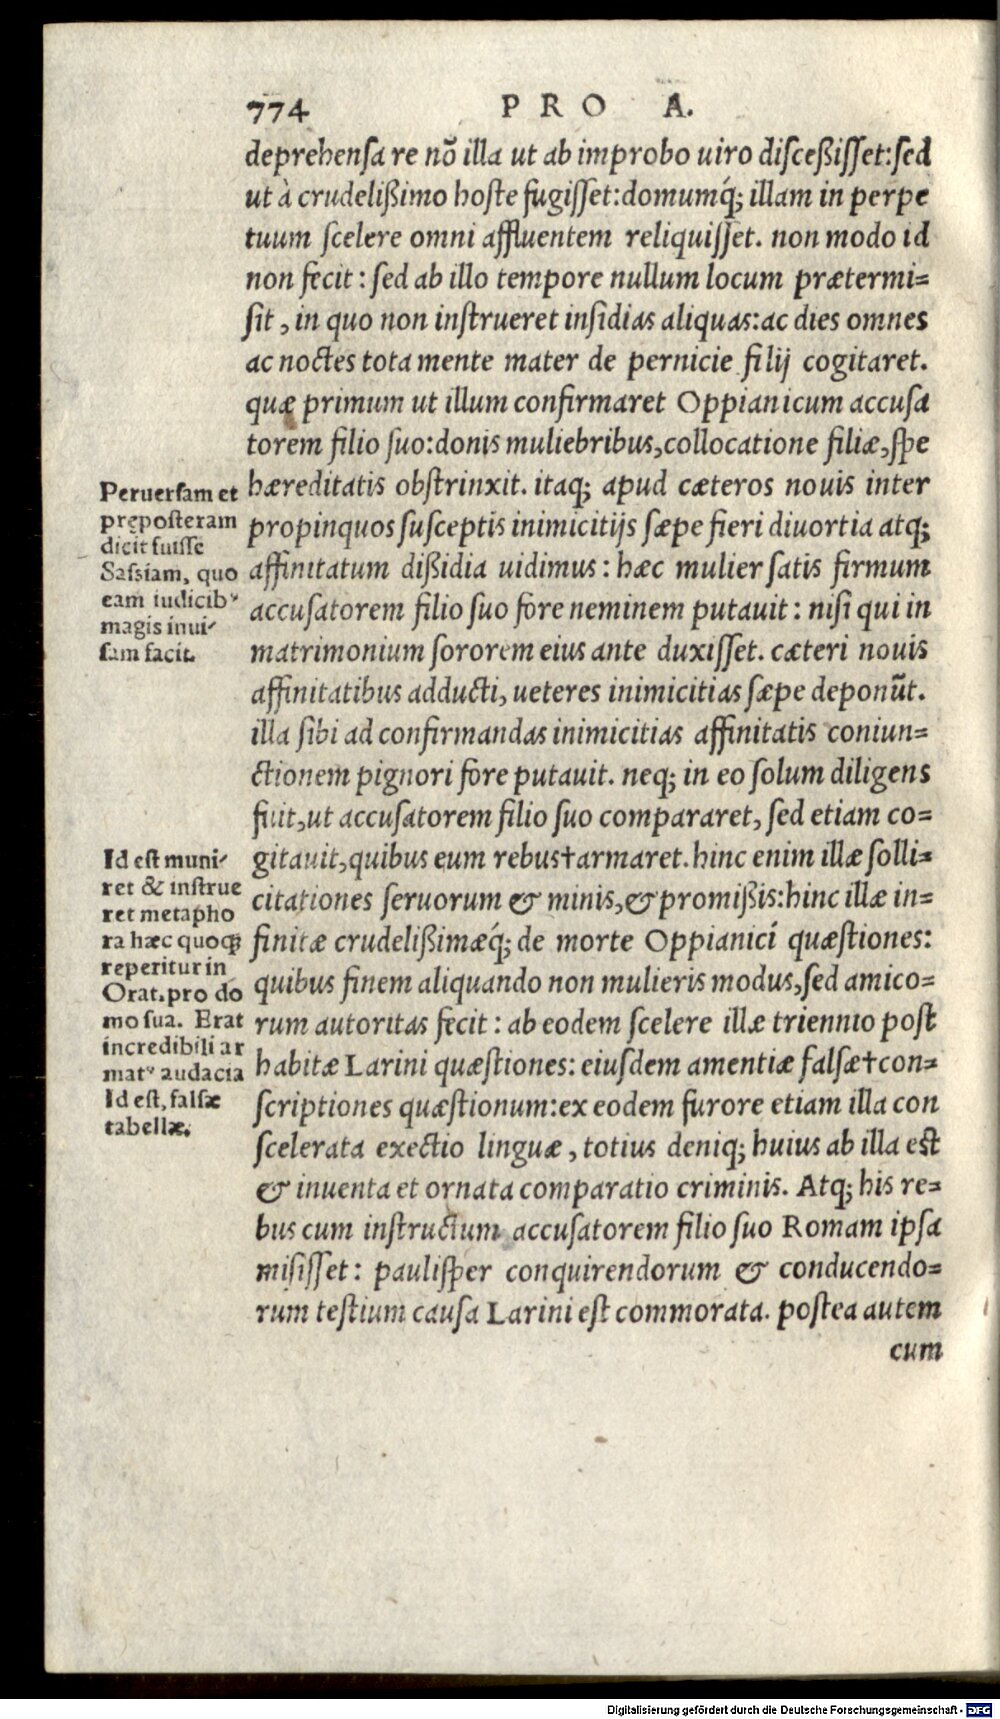 774 PRO A.
deprehensa re nõ illa ut ab improbo uiro disceßisset: sed
ut à crudelißimo hoste fugisset: domumq́; illam in perpe
tuum scelere omni affluentem reliquisset. non modo id
non fecit: sed ab illo tempore nullum locum prætermi=
sit, in quo non instrueret insidias aliquas: ac dies omnes
ac noctes tota mente mater de pernicie filij cogitaret.
quæ primum ut illum confirmaret Oppianicum accusa
torem filio suo: donis muliebribus, collocatione filiæ, spe
hæreditatis obstrinxit. itaq; apud cæteros nouis inter
propinquos susceptis inimicitijs sæpe fieri diuortia atq;
affinitatum dißidia uidimus: hæc mulier satis firmum
accusatorem filio suo fore neminem putauit: nisi qui in
matrimonium sororem eius ante duxisset. cæteri nouis
affinitatibus adducti, ueteres inimicitias sæpe deponũt.
illa sibi ad confirmandas inimicitias affinitatis coniun=
ctionem pignori fore putauit. neq; in eo solum diligens
fuit, ut accusatorem filio suo compararet, sed etiam co=
gitauit, quibus eum rebus†armaret. hinc enim illæ solli=
citationes seruorum & minis, & promißis: hinc illæ in=
finitæ crudelißimæq́; de morte Oppianici quæstiones:
quibus finem aliquando non mulieris modus, sed amico=
rum autoritas fecit: ab eodem scelere illæ triennio post
habitæ Larini quæstiones: eiusdem amentiæ falsæ†con=
scriptiones quæstionum: ex eodem furore etiam illa con
scelerata exectio linguæ, totius deniq; huius ab illa est
& inuenta et ornata comparatio criminis. Atq; his re=
bus cum instructum accusatorem filio suo Romam ipsa
misisset: paulisper conquirendorum & conducendo=
rum testium causa Larini est commorata. postea autem
cum
Peruersam et
pręposteram
dicit fuisse
Sassiam, quo
eam iudicibꝰ
magis inui-
sam facit.
Id est muni-
ret & instrue
ret metapho
ra hæc quoqꝫ
reperitur in
Orat. pro do
mo sua. Erat
incredibili ar
matꝰ audacia
Id est, falsæ
tabellæ.
Digitalisierung gefördert durch die Deutsche Forschungsgemeinschaft - DFG